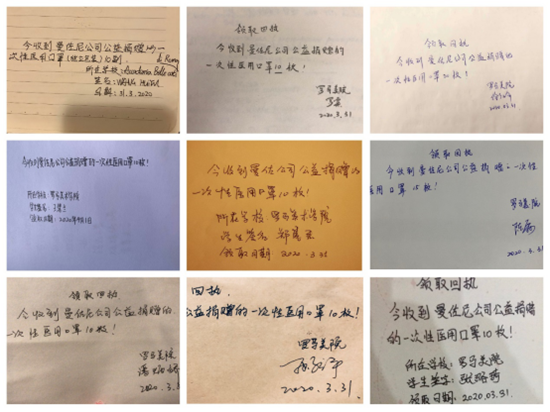 今收到曼佐尼公司公益捐赠的一
次性医用口罩
所在学校:Accademia Belle Arti
签名:
日期:31.3.2020
领取回执
今收到曼佐尼公司公益捐赠的
一次性医用口罩10枚!
罗马美院
2020.3.31
领取回执
今收到曼佐尼公司公益捐赠的
一次性医用口罩10枚!
罗马美院
今收到曼佐尼公司公益捐赠的一次性医用口罩10枚!
所在学校:罗马美术学院
今收到曼佐尼公司公益捐赠的
一次性医用口罩10枚!
所在学校 罗马美术学院
学生签名
领取日期 2020.3.31
领取回执
今收到曼佐尼公司公益捐赠一次性
医用口罩10枚!
罗马美院
2020.4.
领取回执
今收到曼佐尼公司公益捐赠的
一次性医用口罩10枚!
罗马美院
2020.3.31
回执
公益捐赠的一次性医用口罩10枚!
罗马美院
2020.3.31.
领取回执
今收到曼佐尼公司公益捐赠
的一次性医用口罩10枚!
所在学校:罗马美院
学生签字:
领取日期:2020.03.31